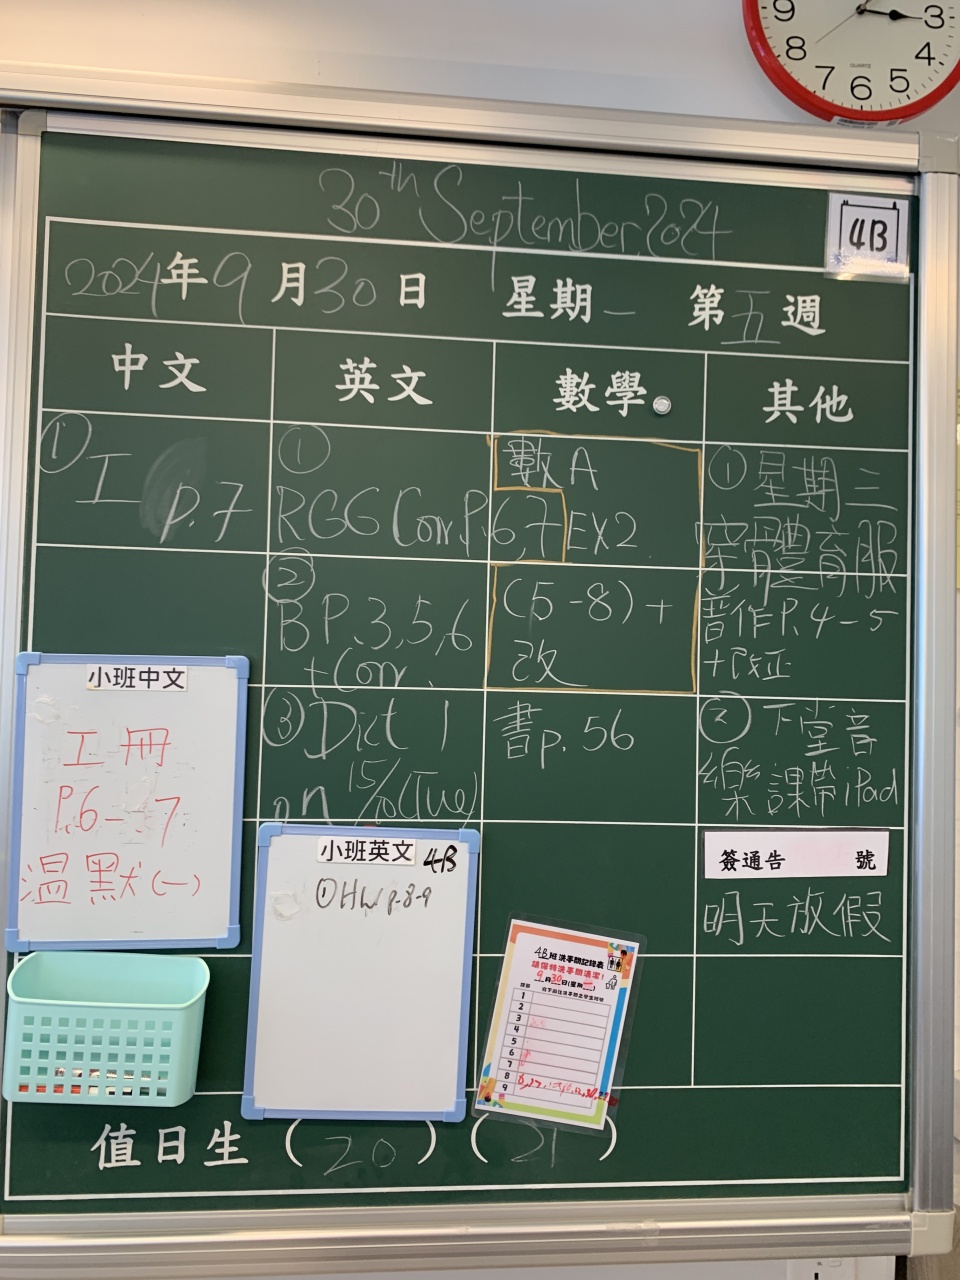 9
3
8
4
7
6
5
QUARTZ
30th September, 2024
4B
2024年9月30日 星期一 第五週
中文
英文
數學
其他
① 工
p.7
①
RGG Corr P.6,7
②
B P.3,5,6
+Corr.
③ Dict 1
on 15/10(Tue)
數A
EX2
(5-8)+
改
書p.56
① 星期三
穿體育服
普作P.4-5
+改正
② 下堂音
樂課帶iPad
簽通告 號
明天放假
小班中文
工冊
P.6-7
溫默(一)
小班英文 4B
①HW p.8-9
4B班洗手間記錄表
請保持洗手間清潔!
9月30日(星期一)
1
2
3
4
5
6
7
8
9
值日生 (20) (21)